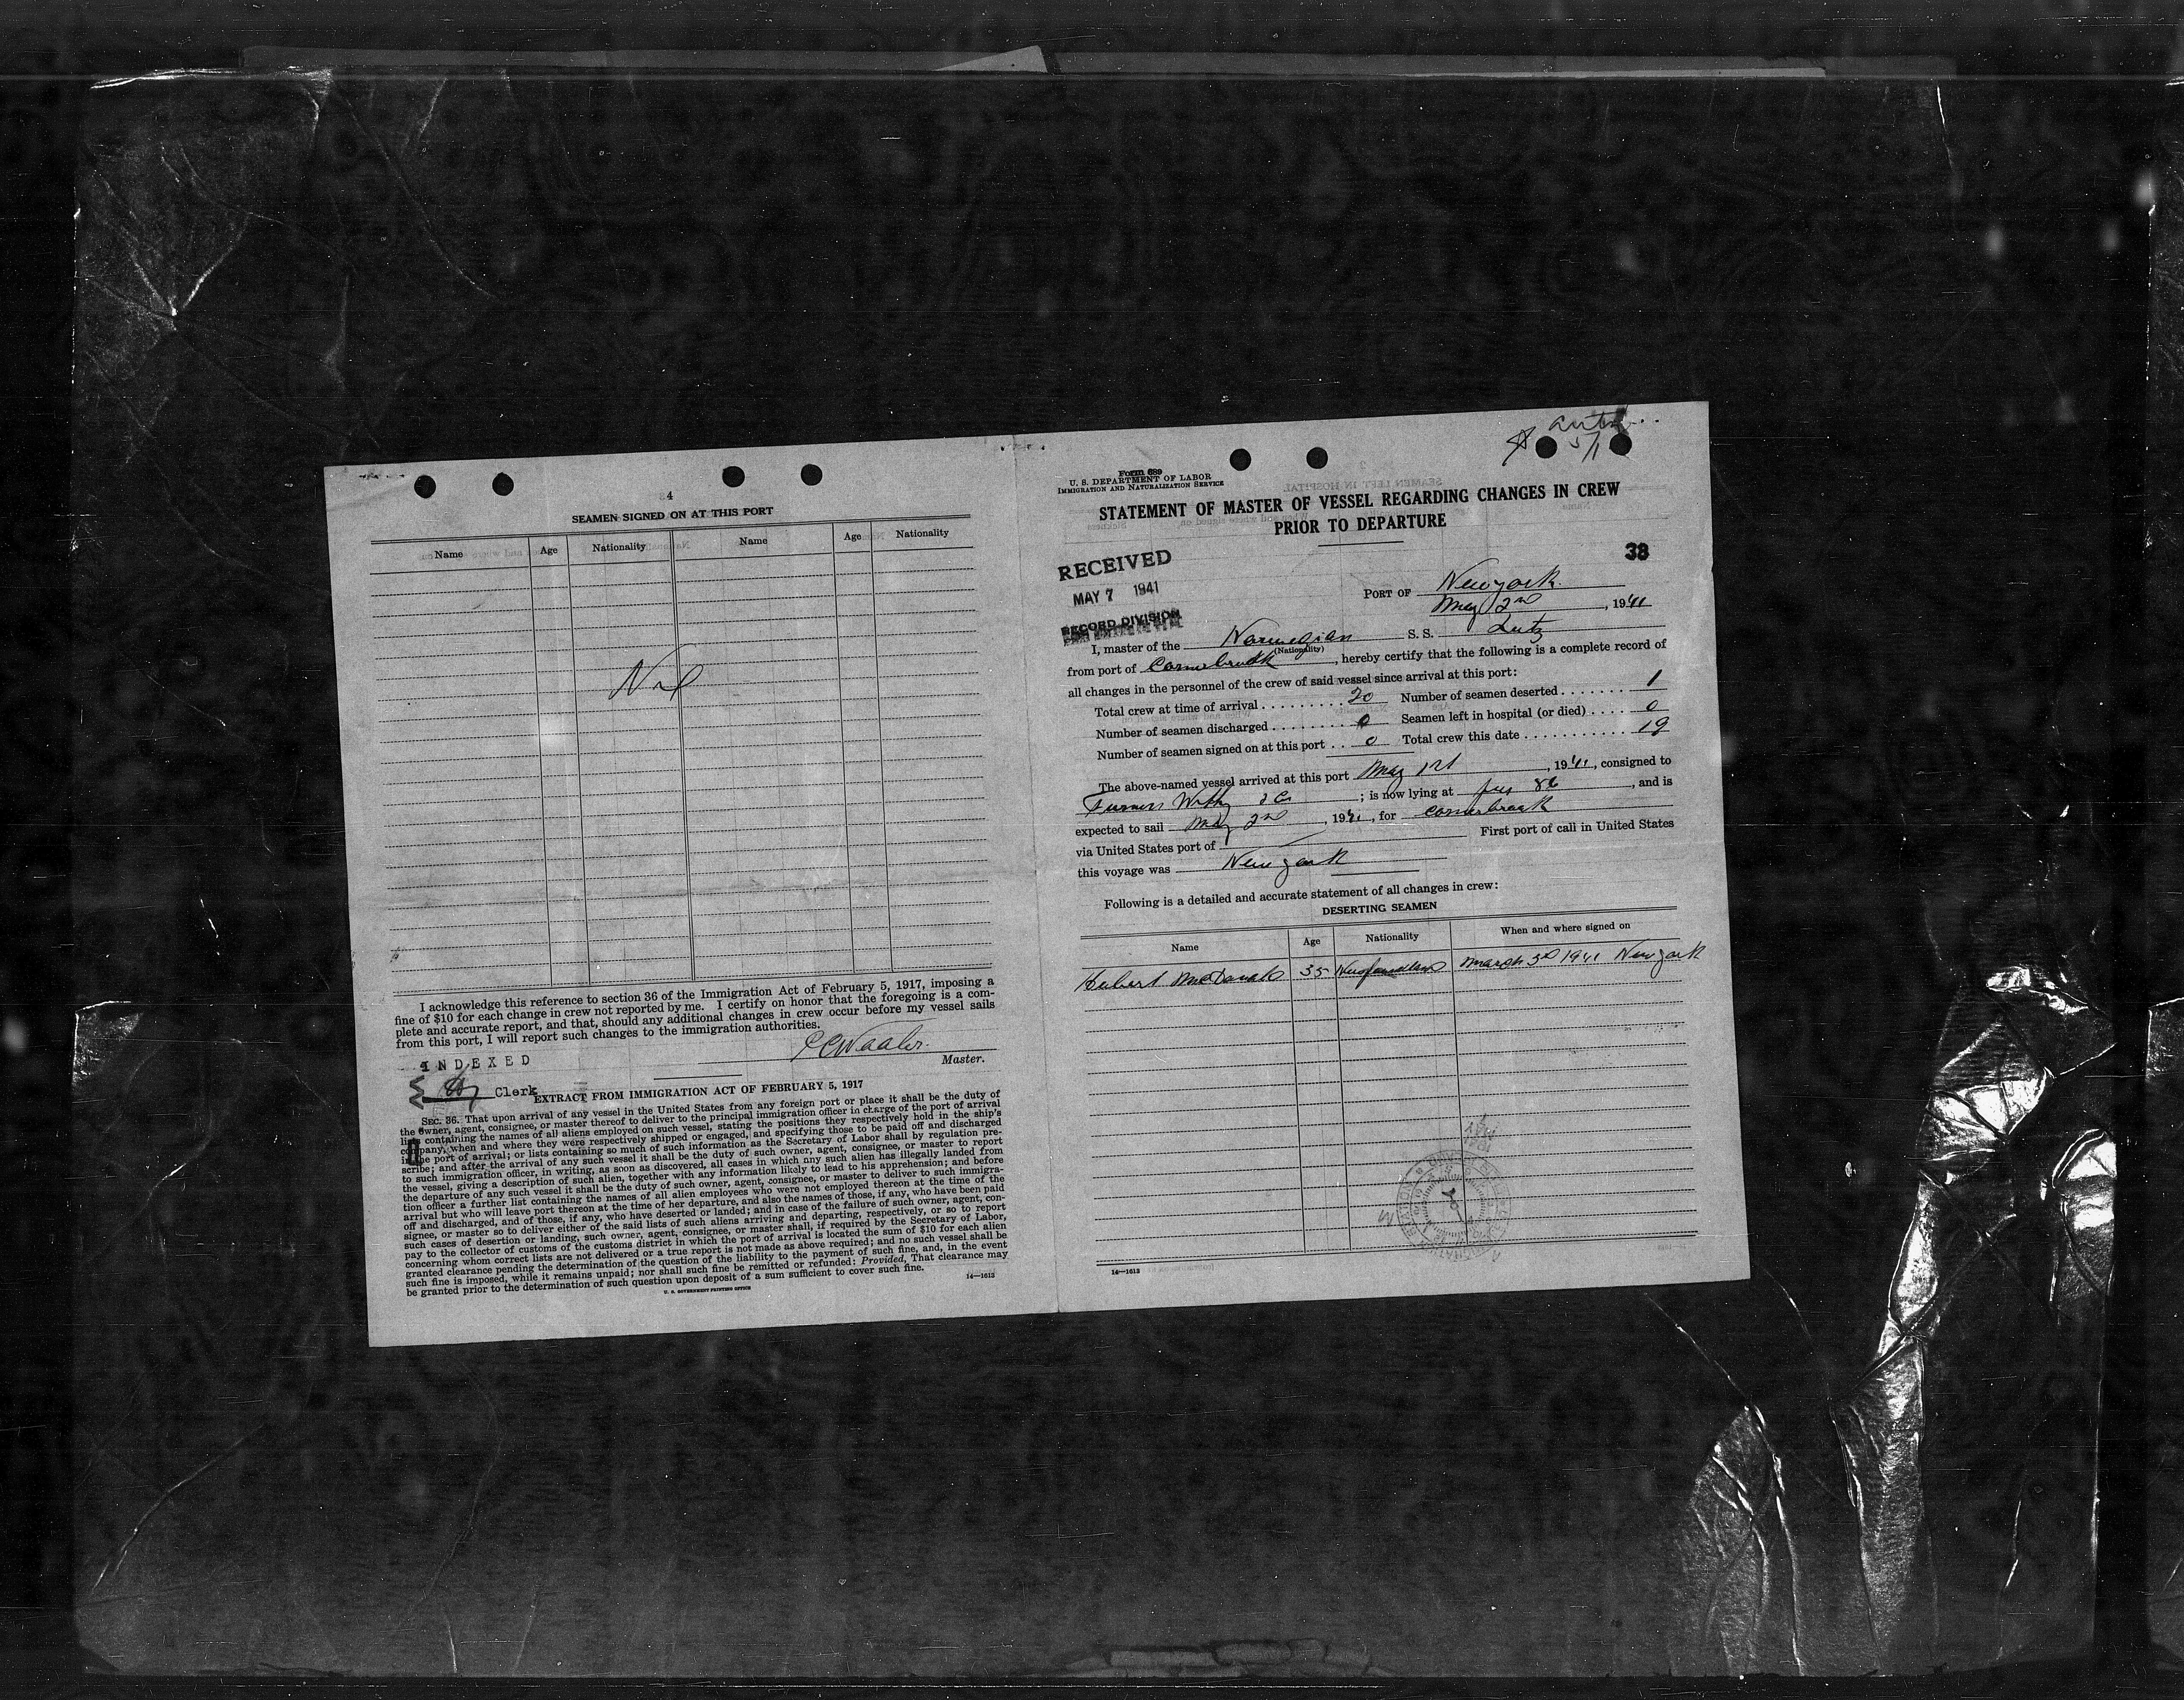 4
SEAMEN SIGNED ON AT THIS PORT
Name Age Nationality Name Age Nationality
Nil
I acknowledge this reference to section 36 of the Immigration Act of February 5, 1917, imposing a
fine of $10 for each change in crew not reported by me. I certify on honor that the foregoing is a com-
plete and accurate report, and that, should any additional changes in crew occur before my vessel sails
from this port, I will report such changes to the immigration authorities.
Master.
INDEXED
Clerk
EXTRACT FROM IMMIGRATION ACT OF FEBRUARY 5, 1917
SEC. 36. That upon arrival of any vessel in the United States from any foreign port or place it shall be the duty of
the owner, agent, consignee, or master thereof to deliver to the principal immigration officer in charge of the port of arrival
lists containing the names of all aliens employed on such vessel, stating the positions they respectively hold in the ship's
company, when and where they were respectively shipped or engaged, and specifying those to be paid off and discharged
in the port of arrival; or lists containing so much of such information as the Secretary of Labor shall by regulation pre-
scribe; and after the arrival of any such vessel it shall be the duty of such owner, agent, consignee, or master to report
to such immigration officer, in writing, as soon as discovered, all cases in which any such alien has illegally landed from
the vessel, giving a description of such alien, together with any information likely to lead to his apprehension; and before
the departure of any such vessel it shall be the duty of such owner, agent, consignee, or master to deliver to such immigra-
tion officer a further list containing the names of all alien employees who were not employed thereon at the time of the
arrival but who will leave port thereon at the time of her departure, and also the names of those, if any, who have been paid
off and discharged, and of those, if any, who have deserted or landed; and in case of the failure of such owner, agent, con-
signee, or master so to deliver either of the said lists of such aliens arriving and departing, respectively, or so to report
such cases of desertion or landing, such owner, agent, consignee, or master shall, if required by the Secretary of Labor,
pay to the collector of customs of the customs district in which the port of arrival is located the sum of $10 for each alien
concerning whom correct lists are not delivered or a true report is not made as above required; and no such vessel shall be
granted clearance pending the determination of the question of the liability to the payment of such fine, and, in the event
such fine is imposed, while it remains unpaid; nor shall such fine be remitted or refunded: Provided, That clearance may
be granted prior to the determination of such question upon deposit of a sum sufficient to cover such fine.
14—1612
U. S. GOVERNMENT PRINTING OFFICE
5/1
Form 689
U. S. DEPARTMENT OF LABOR
IMMIGRATION AND NATURALIZATION SERVICE
STATEMENT OF MASTER OF VESSEL REGARDING CHANGES IN CREW
PRIOR TO DEPARTURE
38
RECEIVED
MAY 7 1941
RECORD DIVISION
PORT OF New york
May 2nd, 1941
I, master of the Norwegian S. S. Lutz
(Nationality)
from port of Cornerbrook, hereby certify that the following is a complete record of
all changes in the personnel of the crew of said vessel since arrival at this port:
Total crew at time of arrival 20 Number of seamen deserted 1
Number of seamen discharged 0 Seamen left in hospital (or died) 0
Number of seamen signed on at this port 0 Total crew this date 19
The above-named vessel arrived at this port May 1st, 1941, consigned to
Furness Withy & Co; is now lying at pier 86, and is
expected to sail May 2nd, 1941, for Cornerbrook
via United States port of First port of call in United States
this voyage was New york
Following is a detailed and accurate statement of all changes in crew:
DESERTING SEAMEN
Name Age Nationality When and where signed on
Hubert MacDonald 35 Newfoundland March 3rd 1941 New york
14—1612